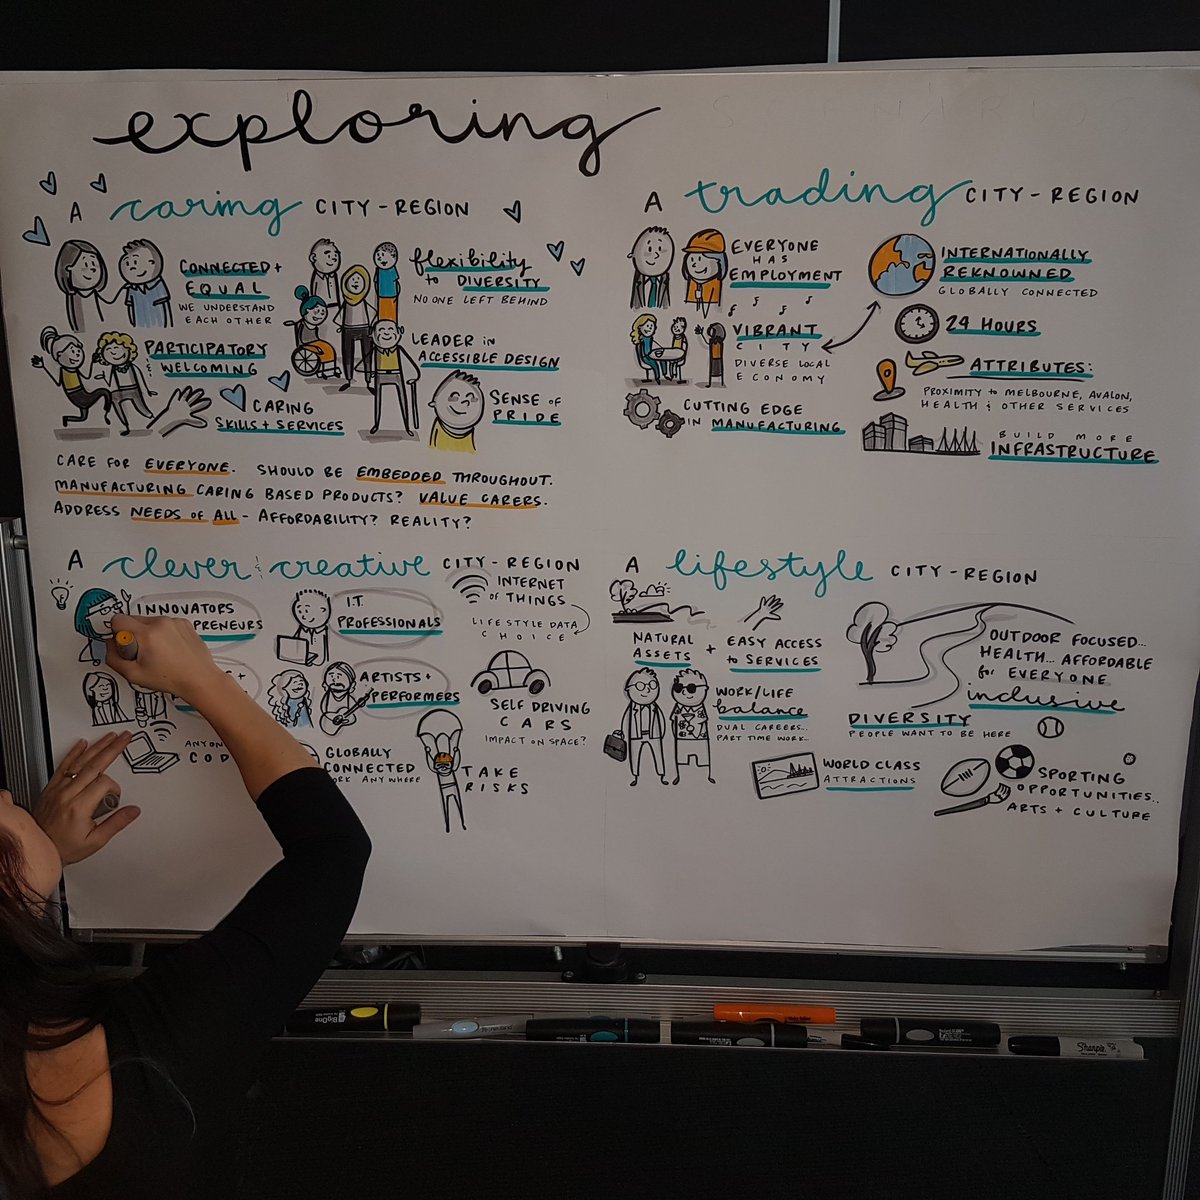 exploring
SCENARIOS
A caring CITY-REGION
CONNECTED +
EQUAL
WE UNDERSTAND
EACH OTHER
PARTICIPATORY
&
WELCOMING
CARING
SKILLS + SERVICES
flexibility
to DIVERSITY
NO ONE LEFT BEHIND
LEADER in
ACCESSIBLE DESIGN
SENSE of
PRIDE
CARE FOR EVERYONE. SHOULD BE EMBEDDED THROUGHOUT.
MANUFACTURING CARING BASED PRODUCTS? VALUE CARERS.
ADDRESS NEEDS of ALL - AFFORDABILITY? REALITY?
A trading CITY-REGION
EVERYONE
HAS
EMPLOYMENT
VIBRANT
CITY
DIVERSE LOCAL
ECONOMY
CUTTING EDGE
IN MANUFACTURING
INTERNATIONALLY
REKNOWNED
GLOBALLY CONNECTED
24 HOURS
ATTRIBUTES:
PROXIMITY to MELBOURNE, AVALON,
HEALTH & OTHER SERVICES
BUILD MORE
INFRASTRUCTURE
A clever & creative CITY-REGION
INNOVATORS
PRENEURS
I.T.
PROFESSIONALS
INTERNET
OF THINGS
LIFESTYLE DATA
CHOICE
ARTISTS +
PERFORMERS
SELF DRIVING
CARS
IMPACT ON SPACE?
COD
GLOBALLY
CONNECTED
ANYWHERE
TAKE
RISKS
A lifestyle CITY-REGION
NATURAL
ASSETS
+
EASY ACCESS
to SERVICES
WORK/LIFE
balance
DUAL CAREERS...
PART TIME WORK...
WORLD CLASS
ATTRACTIONS
OUTDOOR FOCUSED...
HEALTH... AFFORDABLE
for EVERYONE
inclusive
DIVERSITY
PEOPLE WANT TO BE HERE
SPORTING
OPPORTUNITIES..
ARTS + CULTURE
BigOne
Sharpie